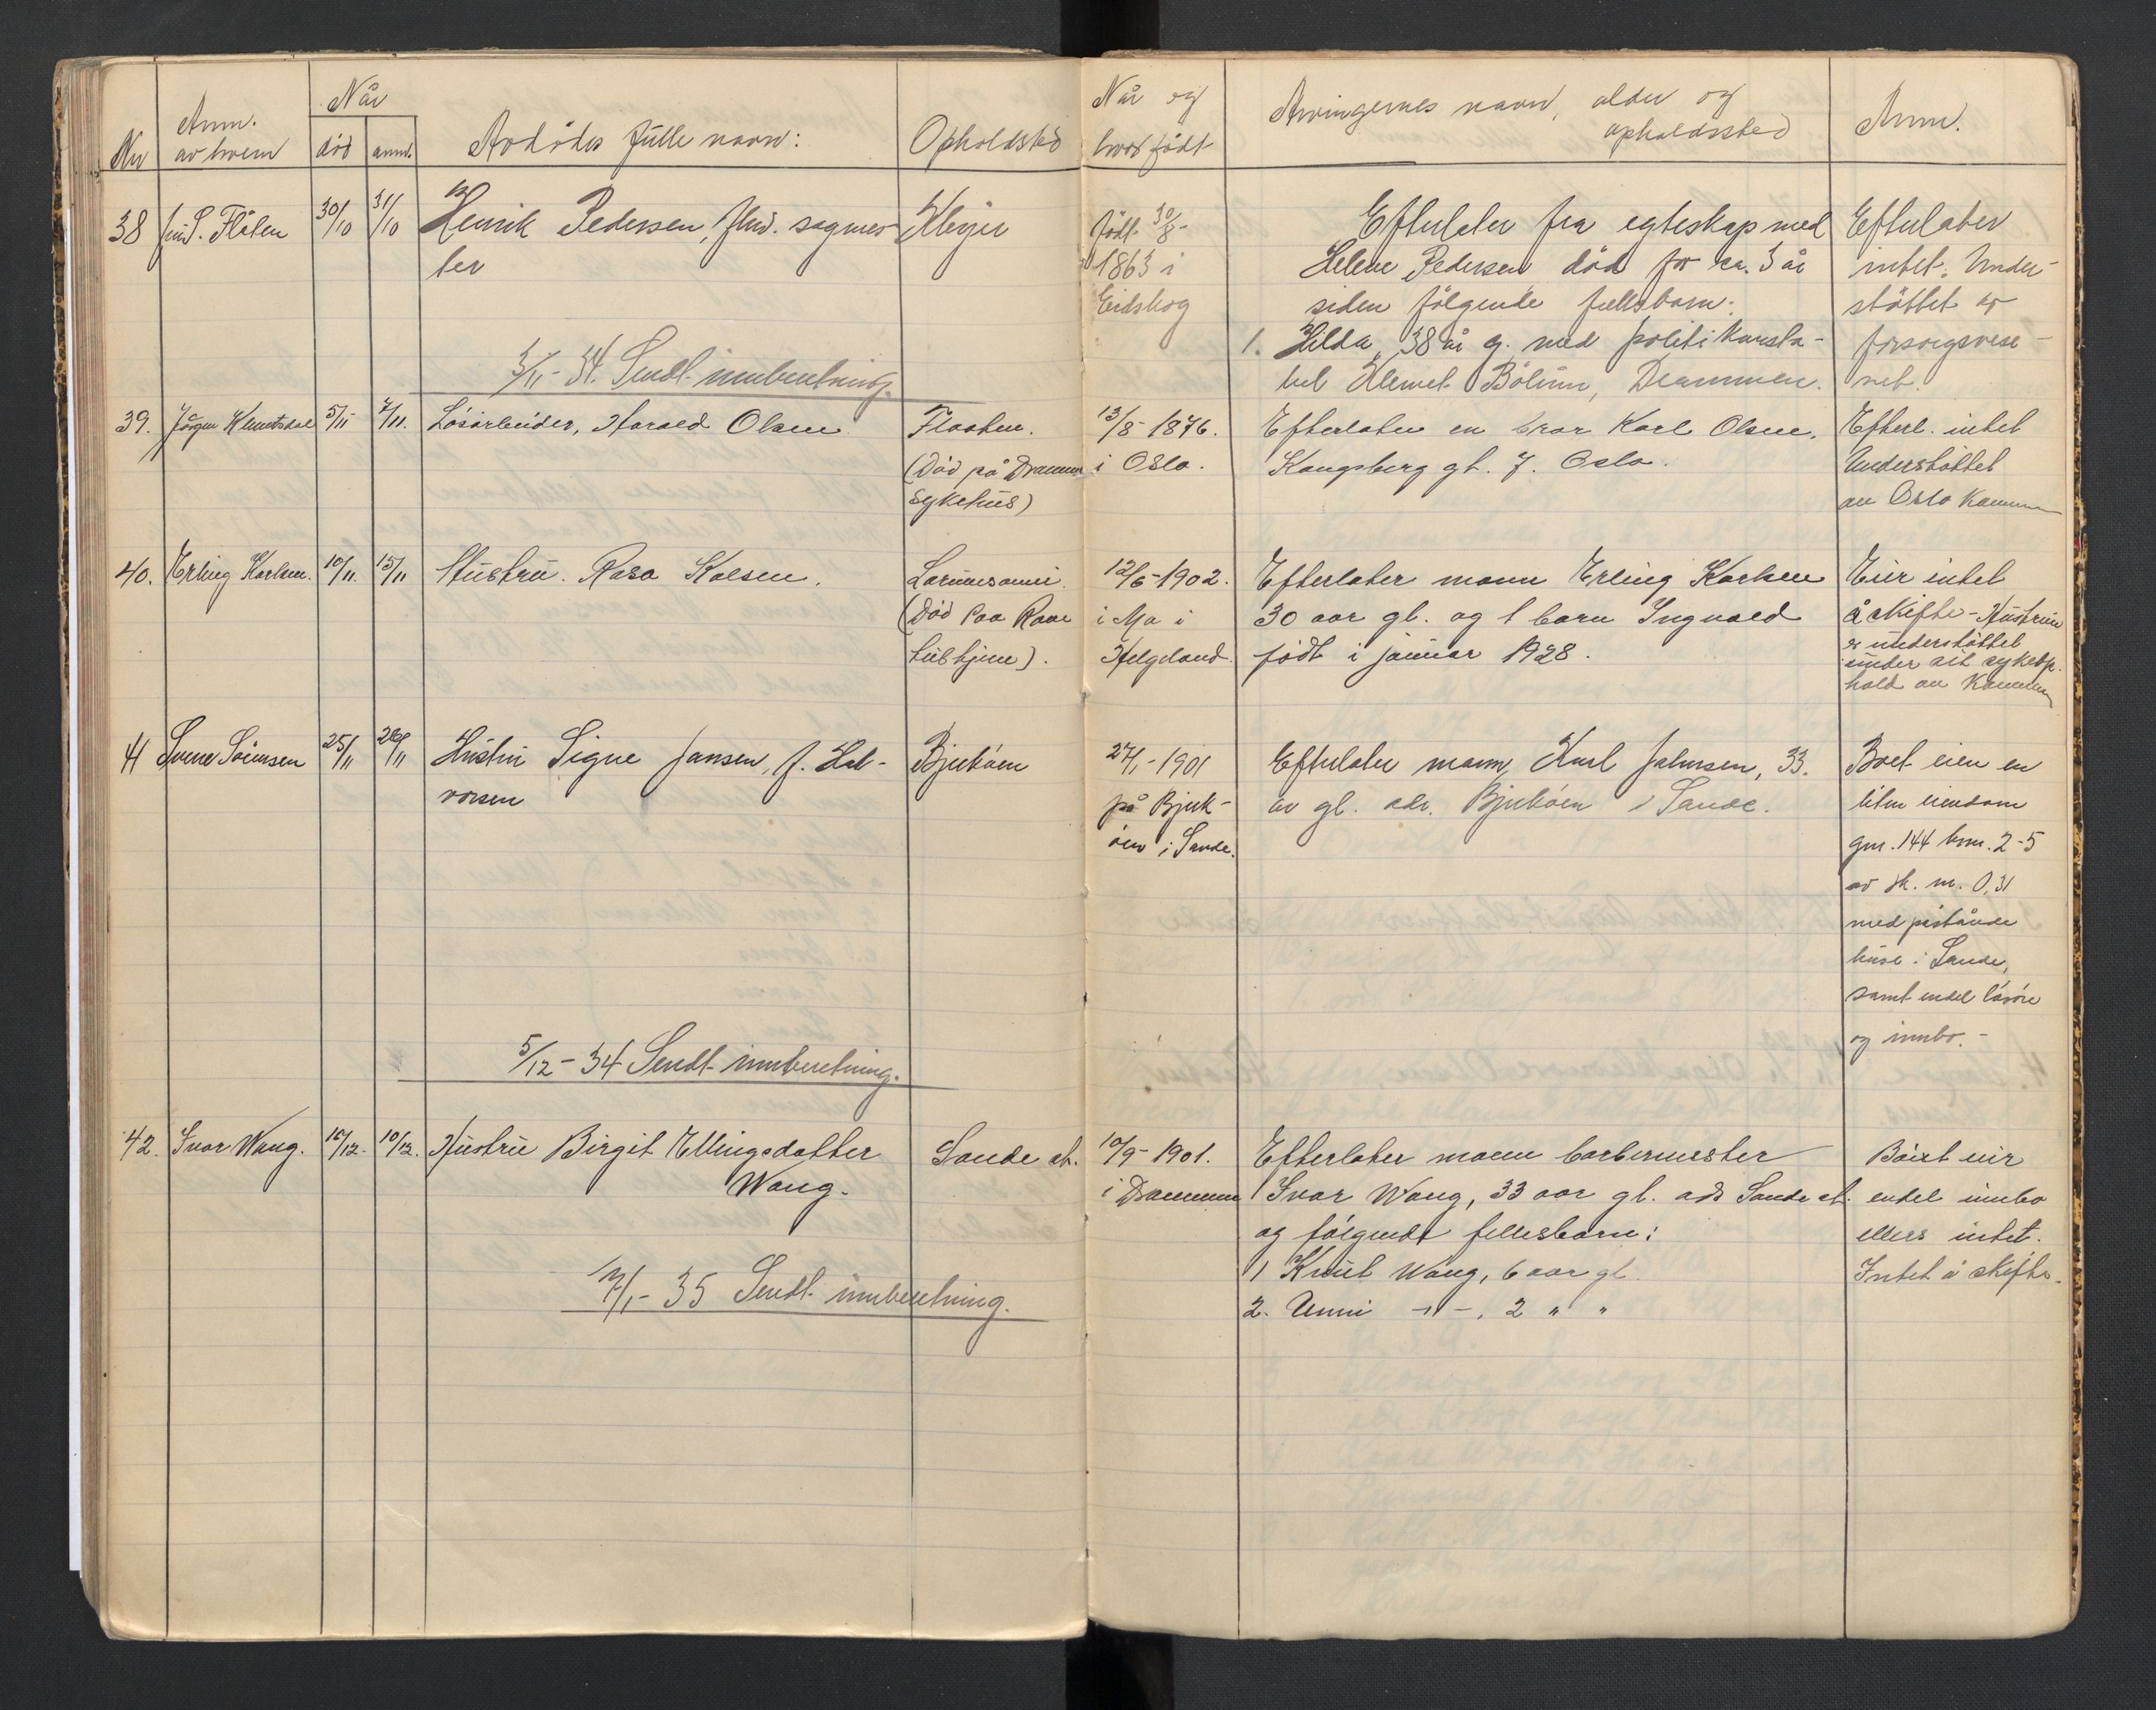 Når
Anm. Når og Arvingernes navn, alder og
Nr av hvem død anm. Avdødes fulle navn: Opholdsted hvor født opholdssted Anm.
38 S. Flåten 30/10 31/10 Henrik Pedersen, fhv. sagmes- Kleiver Født 30/8- Efterlater fra egteskap med Efterlater
ter 1863 i Helene Pedersen død for ca. 3 år intet. Under-
Eidskog siden følgende fellesbarn: støttet av
1. Hilda, 38 år g. med politikonsta- forsorgsvese-
3/11-34. Sendt innberetning. bel Klemet Bölum, Drammen. net.
39. Jörgen Klemetsdal 5/11 7/11. Lösarbeider, Harald Olsen Flaaten. 13/8-1876. Efterlater en bror Karl Olsen. Efterl. intet
(Död på Drammen i Oslo. Kongsberg gt. 7. Oslo. Understöttet
sykehus) av Oslo Kommune
40. Erling Karlsen. 10/11. 15/11 Hustru. Rosa Kalsen. 12/6-1902. Efterlater mann Erling Karlsen Eier intet
(Död paa i Mo i 30 aar gl. og 1 barn Ingvald å skifte - Hustruen
tubhjem). Helgeland. födt i januar 1928. er understöttet
under sit sykeop-
hold av Kommunen
41 Sverre Sörensen 25/11 26/11 Hustru Signe Jansen, f. Hal- Bjerköen 27/1-1901 Efterlater mann, Karl Johnsen, 33. Boet eier en
vorsen på Bjerk- år gl. adr. Bjerköen i Sande. liten eiendom
öen i Sande. gnr. 144 bnr. 2-5
av sk. m. 0,31
med påstående
huse i Sande,
samt endel lösöre
og innbo.-
5/12-34 Sendt innberetning.
42. Ivar Wang. 10/12. 10/12. Hustru Birgit Ellingsdatter Sande st. 10/9-1901. Efterlater mann barbermester Boet eier
Wang. i Drammen Ivar Wang, 33 aar gl. ads Sande st. endel innbo
og fölgende fellesbarn: ellers intet.
1 Knut Wang, 6 aar gl. Intet å skifte.
7/1-35 Sendt innberetning. 2. Unni -"-, 2 " "